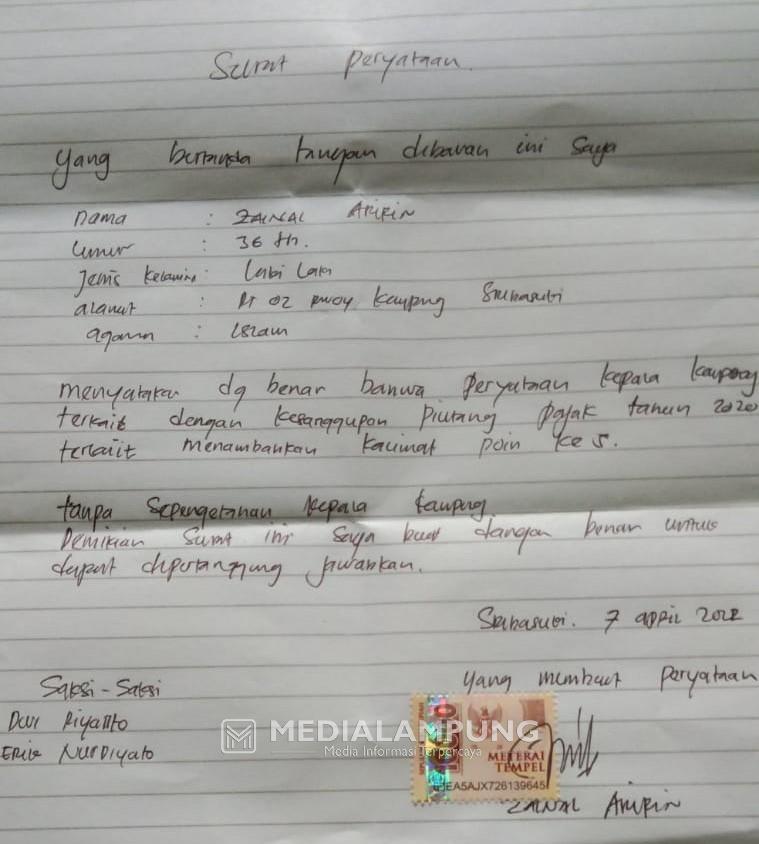 Surat peryataan.
yang bertanda tangan dibawah ini saya
nama : ZAINAL ARIFIN
umur : 36 th.
jenis kelamin : Laki Laki
alamat : Rt 02 kampung Sribasuki
agama : Islam
menyatakan dg benar bahwa peryataan kepala kampung
terkait dengan kesanggupan piutang pajak tahun 2020
terkait menambahkan kalimat poin ke 5.
tanpa sepengetahuan kepala kampung.
Demikian surat ini saya buat dangan benar untuk
dapat dipertanggung jawabkan.
Sribasuki. 7 april 2022
Saksi-Saksi
yang membuat peryataan
Dwi Riyanto
Erik Nurdiyato
MEDIALAMPUNG
Media Informasi Terpercaya
METERAI
TEMPEL
EA5AJX726139645
ZAINAL ARIFIN